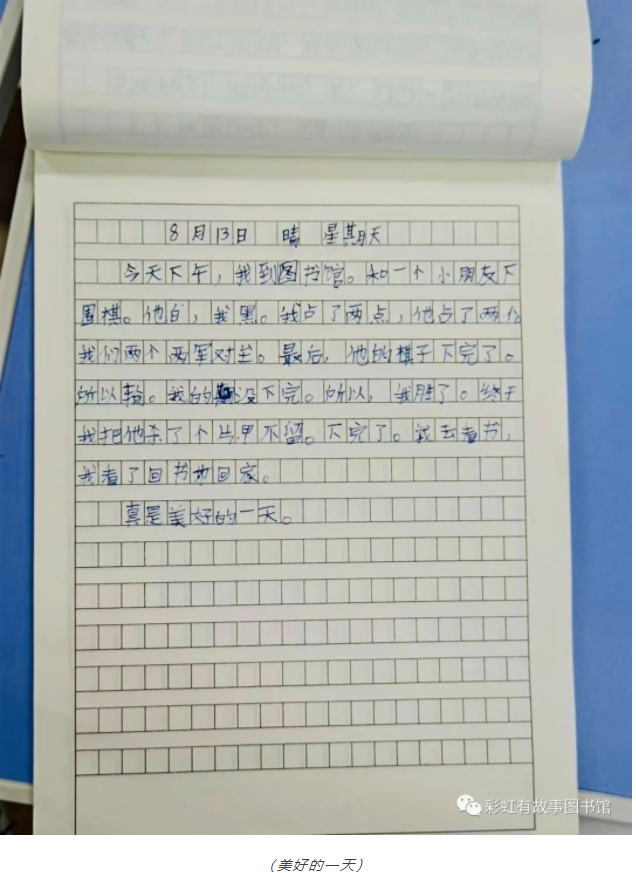 8月13日 晴 星期天
今天下午，我到图书馆。和一个小朋友下
围棋。他白，我黑。我占了两点，他占了两
我们两个两军对垒。最后，他的棋子下完了。
所以输。我的没下完。所以，我胜了。终于
我把他杀了个片甲不留。下完了。我去看书，
我看了回书才回家。
真是美好的一天。
彩虹有故事图书馆
（美好的一天）